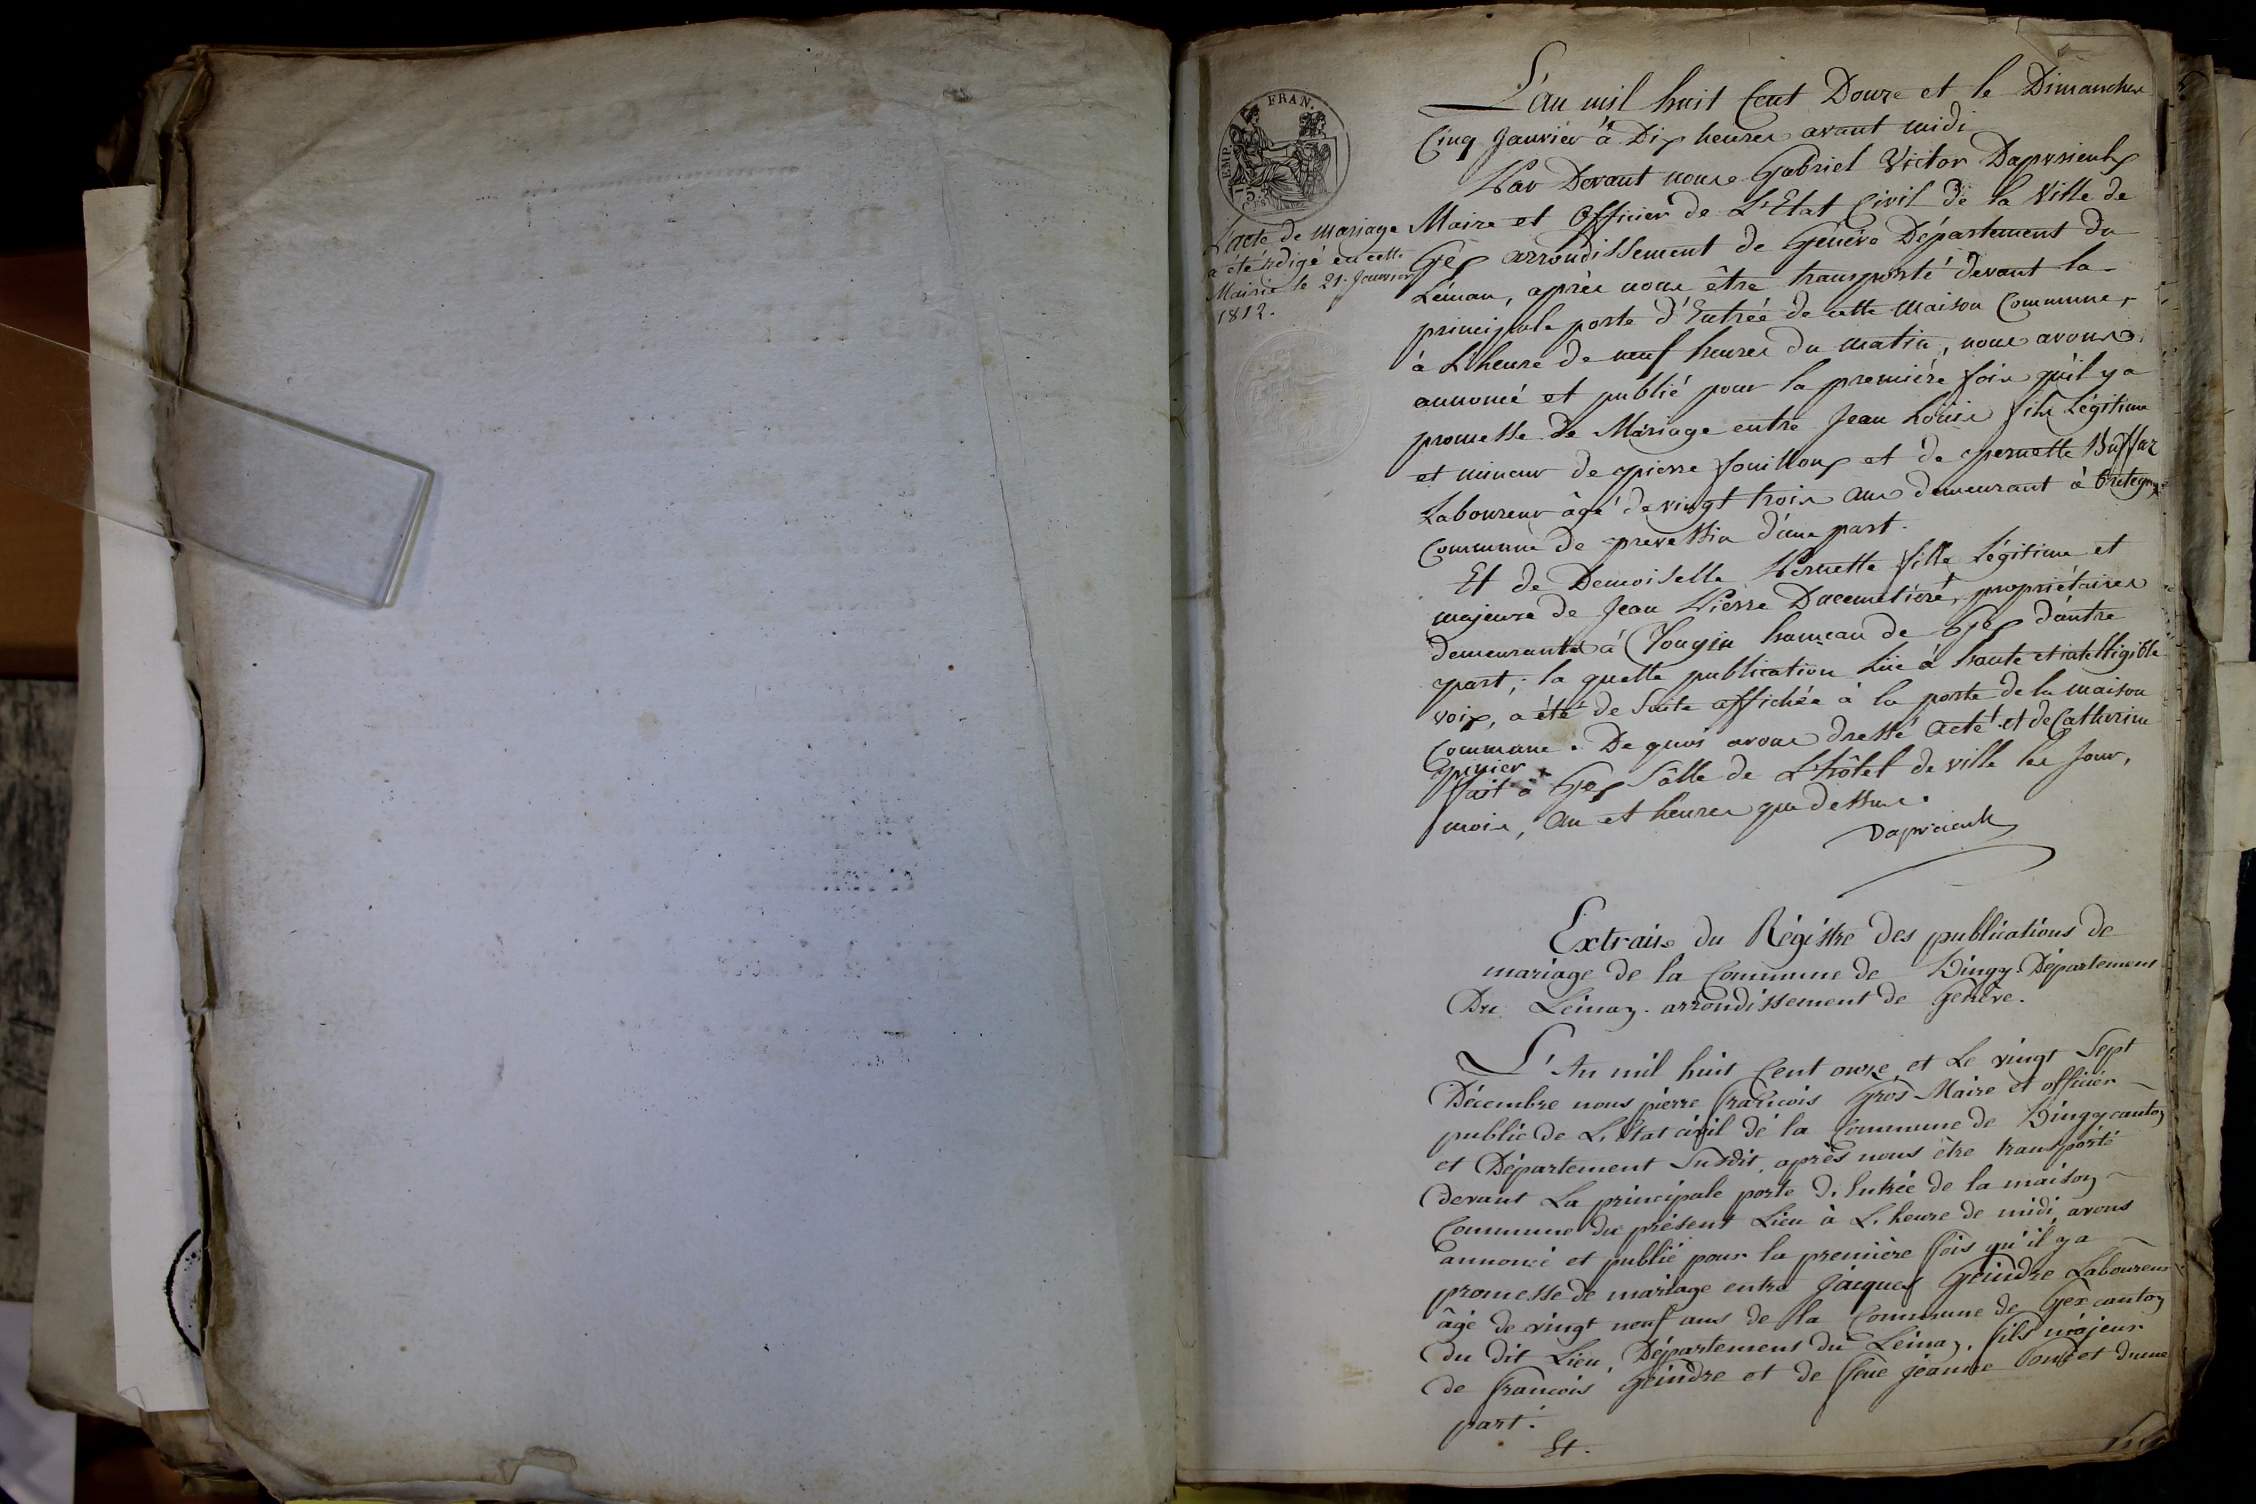 EMP. FRAN.
L'acte de mariage
a été rédigé en cette
Mairie le 21. Janvier
1812.
L'an mil huit Cent Douze et le Dimanche
Cinq Janvier à Dix heures avant midi
Par Devant nous Gabriel Victor Dapvrieulx
Maire et Officier de L'Etat Civil de la Ville de
Gex arrondissement de Genève Département du
Léman, après nous être transporté devant la
principale porte d'Entrée de cette maison Commune,
à L'heure de neuf heures du matin, nous avons
annoncé et publié pour la première fois qu'il y a
promesse de Mariage entre Jean Louis fils Légitime
et mineur de pierre fouilloux et de pernette Buffaz
Laboureur âgé de vingt trois ans demeurant à Bretegny
Commune de prevessin d'une part.
Et de Demoiselle Pernette fille Légitime et
majeure de Jean Pierre Ducimetière, propriétaires
demeurants à Tougin hameau de Gex d'autre
part; la quelle publication lüe à haute et intelligible
voix, a été de Suite affichée à la porte de la maison
Commune. De quoi avons dressé acte et de Catherine
Grenier
fait à Gex Sâlle de L'hôtel de ville les Jour,
mois, an et heures que dessus.
Dapvrieulx
Extrais du Régistre des publications de
mariage de la Commune de Pingy Département
Du Léman. arrondissement de Genève.
L'An mil huit Cent onze et Le vingt Sept
Décembre nous pierre francois Gros Maire et officier
public de L'état civil de la Commune de Pingy canton
et Département Susdit, après nous être transporté
devant La principale porte d'Entrée de la maison
Commune du présent Lieu à L'heure de midi, avons
annoncé et publié pour la première fois qu'il y a
promesse de mariage entre Jacques Geindre Laboureur
âgé de vingt neuf ans de la Commune de Gex canton
du dit Lieu, Département du Léman, fils majeur
de francois Geindre et de feue Jeanne Poncet d'une
part.
Et.